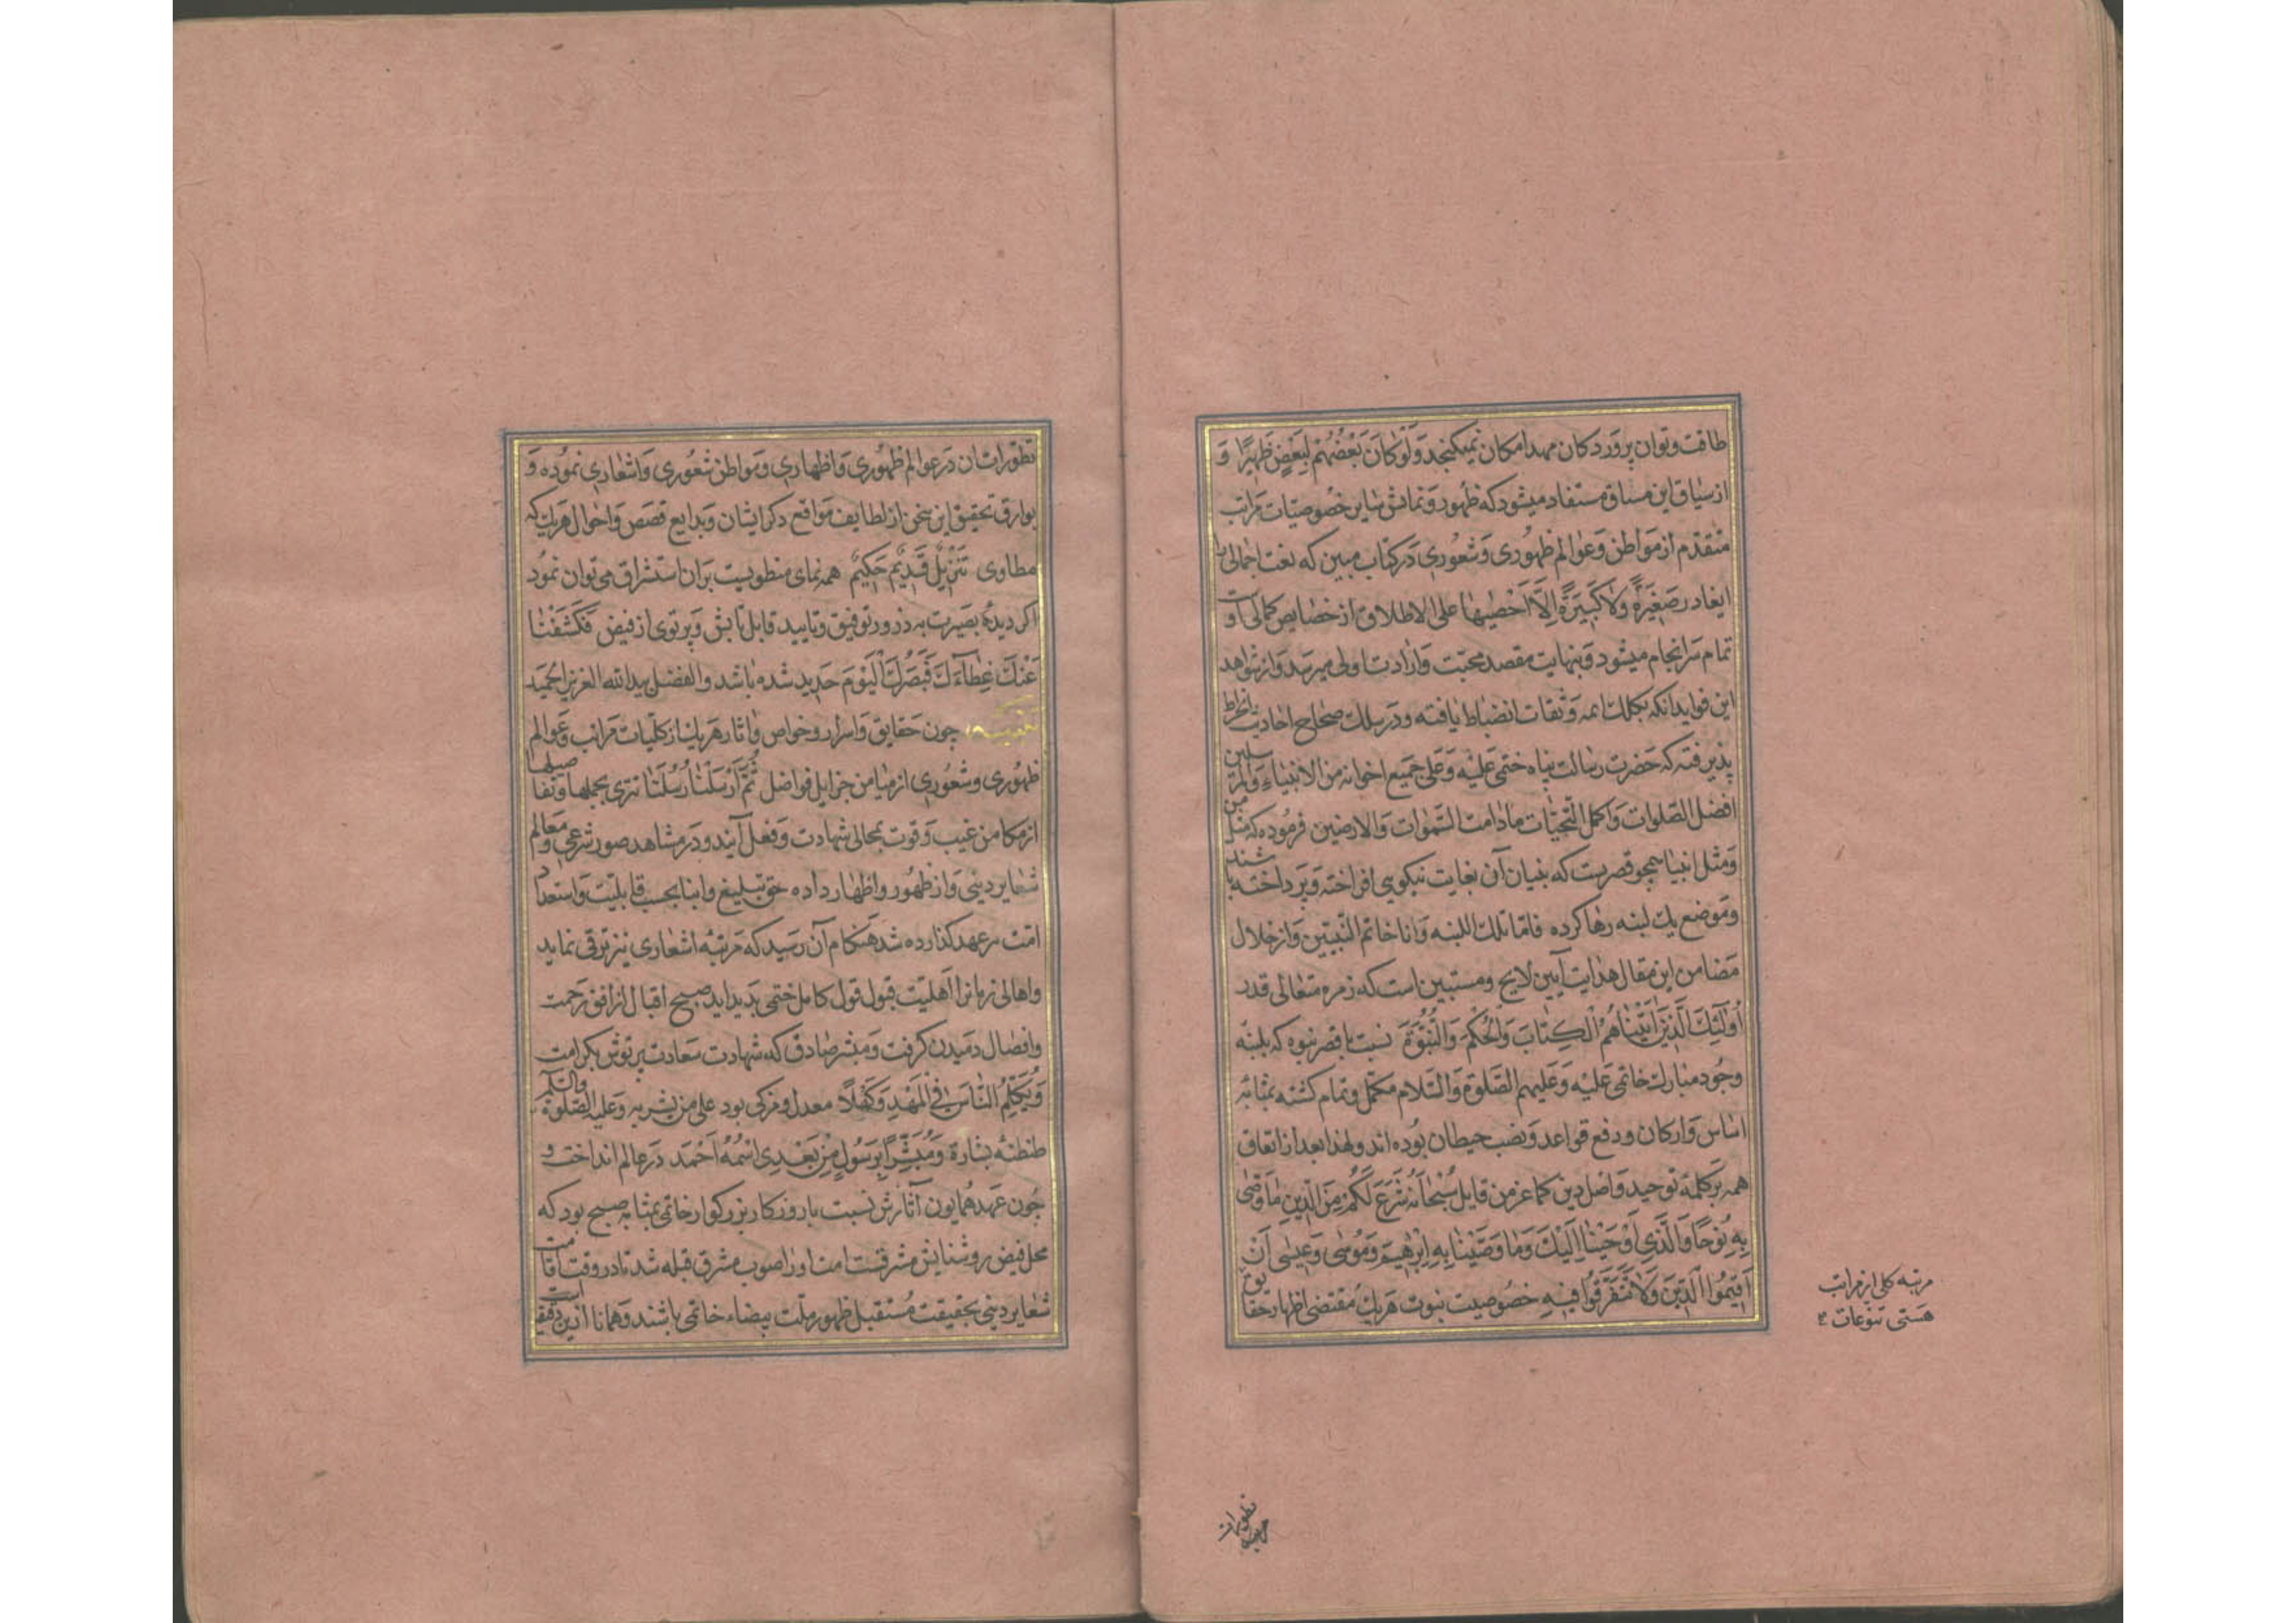 طاقت و توان پرورد کان مهد امکان نمیکنجد وَلَوْ کَانَ بَعْضُهُمْ لِبَعْضٍ ظَهِیرًا وَ
از سیاق این مساق مستفاد میشود که ظهور و نمایش خصوصیات مراتب
متقدم از مواطن و عوالم ظهوری و شعوری در کتاب مبین که نعت اجمالی لا
یغادر صَغِیرَةً وَلَا کَبِیرَةً إِلَّا أَحْصٰیهَا علی الاطلاق از خصایص کمالی
تمام سرانجام میشود و بنهایت مقصد محبت و ارادت اولی میرسد و از شواهد
این فواید انکه بکلک ائمه و ثقات انضباط یافته و در سلک صحاح احادیث انخراط
پذیرفته که حضرت رسالت پناه ختمی علیه وعلی جمیع اخوانه من الانبیاء والمرسلین
افضل الصلوات واکمل التحیات مادامت السموات والارضین فرموده که مثل من
ومثل انبیا همچو قصریست که بنیان آن بغایت نیکویی افراخته و پرداخته باشند
وموضع یک لبنه رها کرده فانا تلک اللبنه وانا خاتم النبیین و از خلال
مضامن این مقال هدایت آیین لایح ومستبین است که زمره متعالی قدر
أُولٰئِكَ الَّذِینَ آتَیْنَاهُمُ الْکِتَابَ وَالْحُکْمَ وَالنُّبُوَّةَ نسبت با قصر نبوه که بلبنه
وجود مبارک خاتمی علیه وعلیهم الصلوة والسلام مکمل وتمام کشته بمثابه
اساس و ارکان و رفع قواعد و نصب حیطان بوده اند ولهذا بعد از اتفاق
همه بر کلمه توحید و اصل دین کما عز من قایل سبحانه شَرَعَ لَکُمْ مِنَ الدِّینِ مَا وَصّٰی
بِهِ نُوحًا وَالَّذِی أَوْحَیْنَا إِلَیْكَ وَمَا وَصَّیْنَا بِهِ إِبْرٰهِیمَ وَمُوسٰی وَعِیسٰی أَنْ
أَقِیمُوا الدِّینَ وَلَا تَتَفَرَّقُوا فِیهِ خصوصیت نبوت هریک مقتضی اظهار حقایق
مرتبه کلی از مراتب
هستی تنوعات
تطورات
تطوراتشان در عوالم ظهوری و اظهاری و مواطن شعوری و اشعاری نموده و
بوارق تحقیق این سخن از لطایف مواقع ذکر ایشان و بدایع قصص و احوال هریک که
مطاوی تَنْزِیلٌ قَدِیمٌ حَکِیمٌ همه نمای منطویست بران استشراق می توان نمود
اکر دیدهٔ بصیرت به ذرور توفیق و تایید قابل تابش و پرتوی از فیض فَکَشَفْنَا
عَنْكَ غِطَاءَكَ فَبَصَرُكَ الْیَوْمَ حَدِید شده باشد والفضل بیدالله العزیز الحمید
چون حقایق و اسرار و خواص و اثار هریک از کلیات مراتب و عوالم
ظهوری و شعوری از میامن جزایل فواضل ثُمَّ أَرْسَلْنَا رُسُلَنَا تتری بجملها وتفاصیلها
از مکامن غیب و قوت بمجالی شهادت و فعل آیند و در مشاهد صور شرعی و معالم
شعایر دینی و از ظهور و اظهار داده حق تبلیغ و انبا بحسب قابلیت و استعداد
امت هر عهد کذارده شد هنکام آن رسید که مرتبه اشعاری نیز ترقی نماید
واهالی زمانرا اهلیت قبول قول کامل ختمی پدید اید صبح اقبال از افق رحمت
وافضال دمیدن کرفت و مبشر صادق که شهادت سعادت پرتوش بکرامت
وَیُکَلِّمُ النَّاسَ فِی الْمَهْدِ وَکَهْلًا معدل و مزکی بود علی من بشر به وعلیه الصلوة والسلام
طنطنه بشارة وَمُبَشِّرًا بِرَسُولٍ مِنْ بَعْدِی اسْمُهُ أَحْمَد در عالم انداخت و
چون عهد همایون آثارش نسبت با روزکار بزرکوار خاتمی بمثابه صبح بود که
محل فیض روشنایش مشرقست امت او را صوب مشرق قبله شد تا در وقت اقامت
شعایر دینی بحقیقت مستقبل ظهور ملت بیضاء خاتمی باشند و همانا ازین دقیقه است